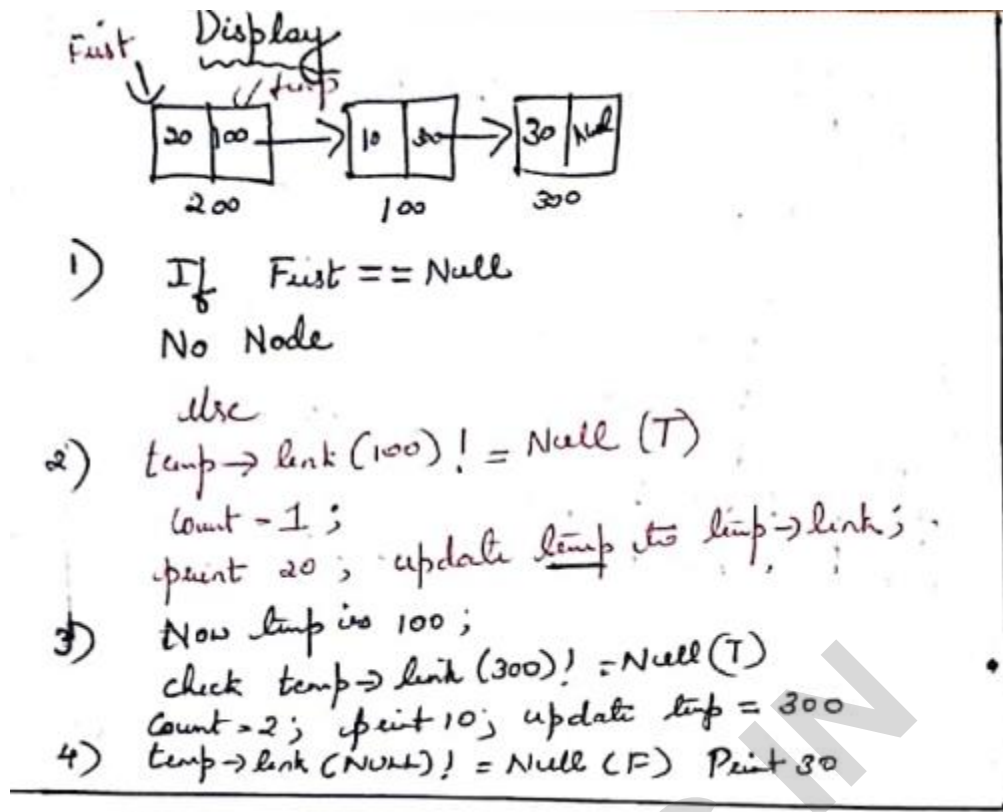 Display
First
temp
20 100 10 300 30 Null
200 100 300
1) If First == Null
No Node
else
2) temp → link (100) != Null (T)
count = 1 ;
print 20 ; update temp to temp → link ;
3) Now temp is 100 ;
check temp → link (300) != Null (T)
count = 2 ; print 10 ; update temp = 300
4) temp → link (NULL) != Null (F) Print 30
IN